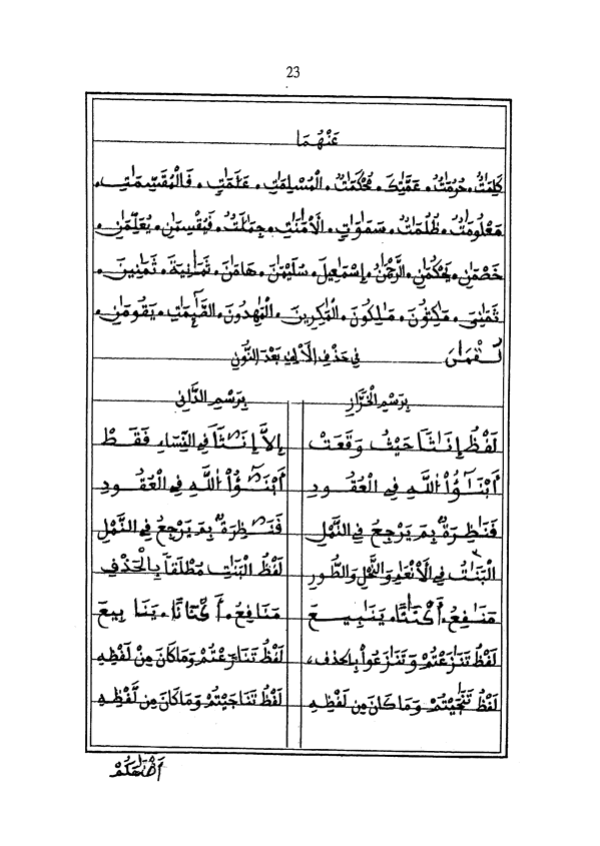 23
عَنْهُمَا
كَلِمَٰتُ. حُرُمَٰتُ. عَمَّٰتِكَ. مُّحْكَمَٰتٌ. الْمُسْلِمَٰتِ. عَلَٰمَٰتٍ. فَالْمُقَسِّمَٰتِ.
مَعْلُومَٰتٌ. ظُلُمَٰتٌ. سَمَٰوَٰتٍ. الْأَمَٰنَٰتِ. جِمَٰلَٰتٌ. فَيُقْسِمَٰنِ. يُعَلِّمَٰنِ.
خَصْمَٰنِ. يَحْكُمَٰنِ. الرَّحْمَٰنُ. إِسْمَٰعِيلَ. سُلَيْمَٰنَ. هَٰمَٰنَ. ثَمَٰنِيَةَ. ثَمَٰنِينَ.
ثَمَٰنِيَ. مَٰكِثُونَ. مَٰلِكُونَ. الْمَٰكِرِينَ. الْمَٰهِدُونَ. الْقِيَٰمَةِ. يَقُومَٰنِ.
لُقْمَٰنَ
فِي حَذْفِ الْأَلِفِ بَعْدَ النُّونِ
بِرَسْمِ الْخَرَّازِ بِرَسْمِ الدَّانِي
لَفْظُ إِنَٰثًا حَيْثُ وَقَعَتْ إِلَّا إِنَٰثًا فِي النِّسَاءِ فَقَطْ
أَبْنَٰٓؤُاْ اللَّهِ فِي الْعُقُودِ أَبْنَٰٓؤُاْ اللَّهِ فِي الْعُقُودِ
فَنَاظِرَةٌ بِمَ يَرْجِعُ فِي النَّمْلِ فَنَٰظِرَةٌ بِمَ يَرْجِعُ فِي النَّمْلِ
الْبَنَٰتُ فِي الْأَنْعَٰمِ وَالنَّحْلِ وَالطُّورِ لَفْظُ الْبَنَٰتِ مُطْلَقًا بِالْحَذْفِ
مَنَٰفِعُ. أَكْنَٰنًا. يَنَٰبِيعَ مَنَافِعُ. أَكْنَانًا. يَنَابِيعَ
لَفْظُ تَنَٰزَعْتُمْ وَتَنَٰزَعُواْ بِالْحَذْفِ، لَفْظُ تَنَازَعْتُمْ وَمَا كَانَ مِنْ لَفْظِهِ
لَفْظُ تَنَٰجَيْتُمْ وَمَا كَانَ مِنْ لَفْظِهِ لَفْظُ تَنَاجَيْتُمْ وَمَا كَانَ مِنْ لَّفْظِهِ